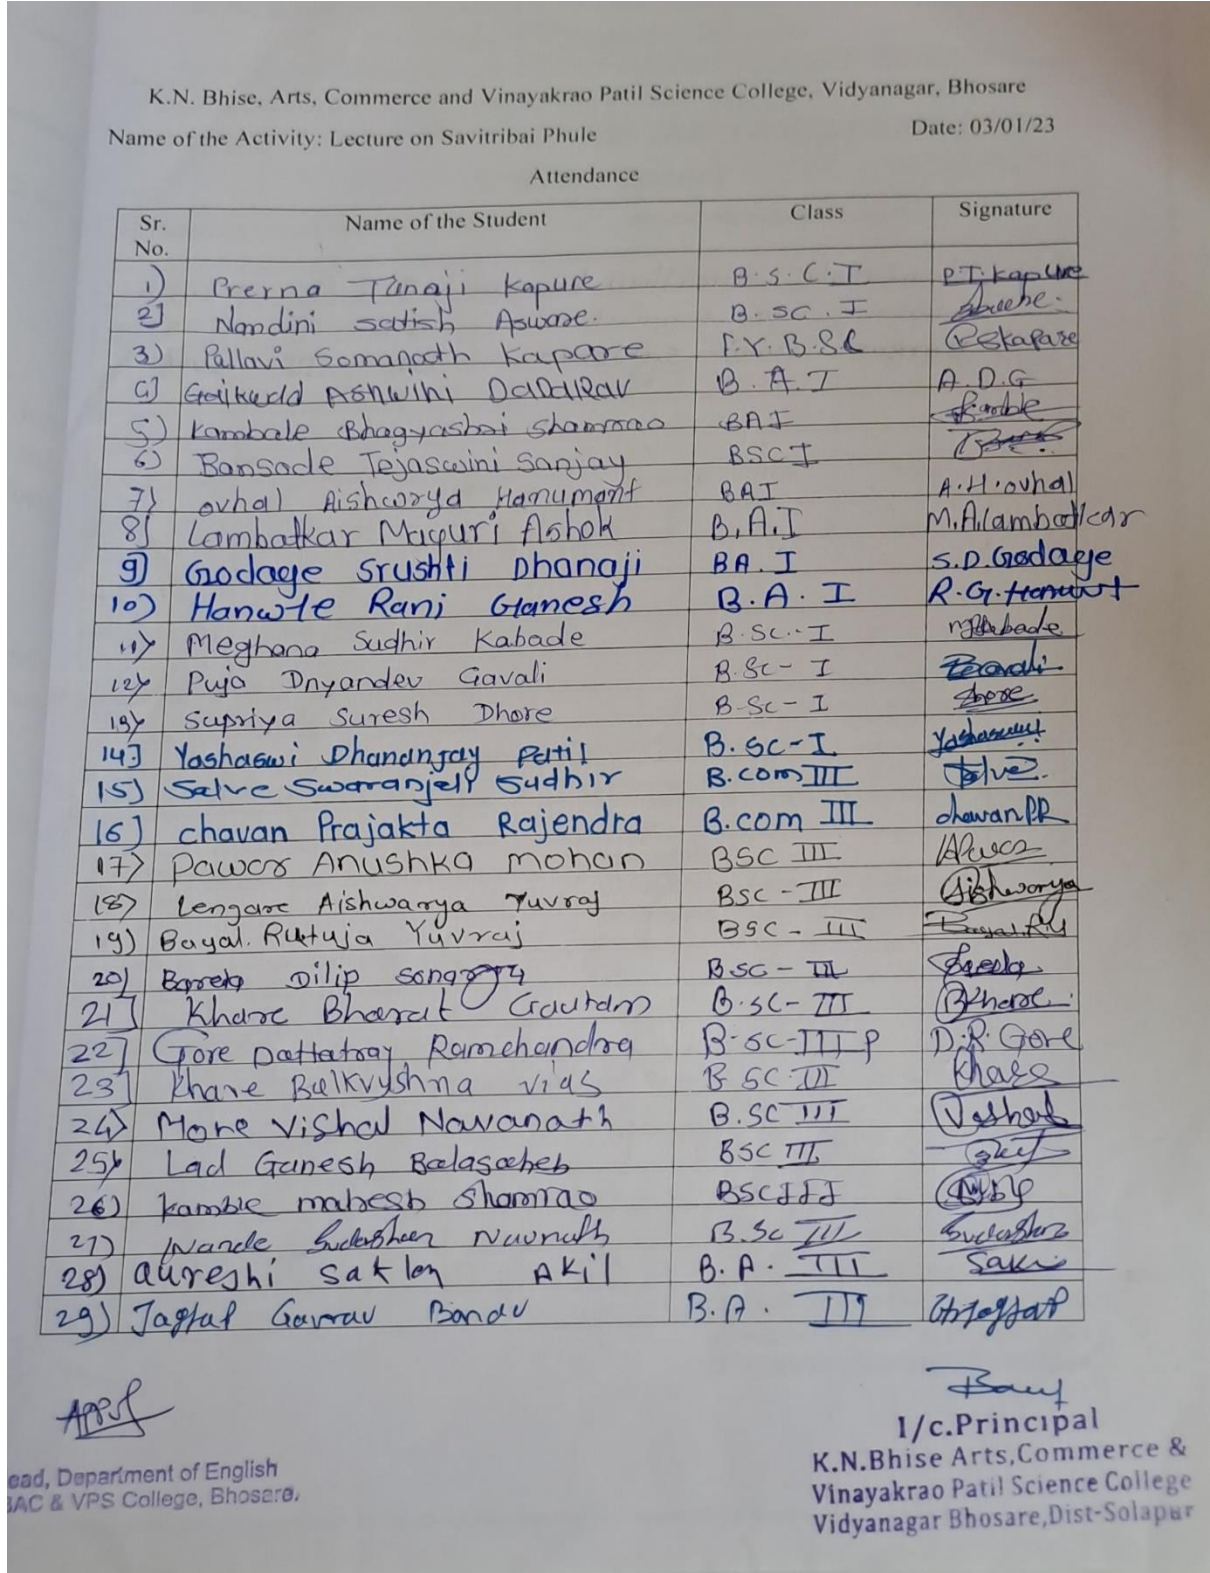 K.N. Bhise, Arts, Commerce and Vinayakrao Patil Science College, Vidyanagar, Bhosare
Name of the Activity: Lecture on Savitribai Phule Date: 03/01/23
Attendance
Sr. No. Name of the Student Class Signature
1) Prerna Tanaji Kapure B.S.C.I P.T. Kapure
2] Nandini Satish Asware. B.SC.I
3) Pallavi Somanath Kapare F.Y.B.SC PSKapare
4] Gaikwdd ASHWiNi DaDaRav B.A.I A.D.G
5) Kambale Bhagyashri Shamrao BAI Kamble
6) Bansode Tejaswini Sanjay BSC I
7) ovhal Aishwarya Hanumant BAI A.H.ovhal
8] Lambatkar Mayuri Ashok B.A.I M.A.Lambatkar
9] Godage Srushti Dhanaji BA.I S.D.Godage
10) Hanwte Rani Ganesh B.A.I R.G.Hanwt
11) Meghana Sudhir Kabade B.Sc.-I
12) Puja Dnyandev Gavali B.Sc-I
13) Supriya Suresh Dhore B-Sc-I Dhore
14] Yashaswi Dhananjay Patil B.Sc-I Yashaswi
15] Salve Swaranjali Sudhir B.com III Salve
16] chavan Prajakta Rajendra B.com III chavan P.R
17) Pawar Anushka mohan BSC III APawar
18) Lengare Aishwarya Yuvraj BSC-III Aishwarya
19) Bagal. Rutuja Yuvraj BSC-III Bagal.R.Y
20) Dilip BSC-III
21] Khare Bharat Gautam B.SC-III BKhare
22] Gore Dattatray Ramchandra B-SC-III P D.R.Gore
23] Khare Balkryshna vias B SC III Khare
24) More Vishal Navanath B.SC III Vishal
25) Lad Ganesh Balasaheb BSC III
26) Kamble mahesh Shamrao BSC III
27) Wande Sudarshan Navnath B.Sc III Sudarshan
28) Qureshi Saklen AKil B.A. III Saki
29) Jagtap Gavrav Bandu B.A. III GBJagtap
I/c.Principal
K.N.Bhise Arts,Commerce &
Vinayakrao Patil Science College
Vidyanagar Bhosare,Dist-Solapur
ead, Department of English
AC & VPS College, Bhosare.